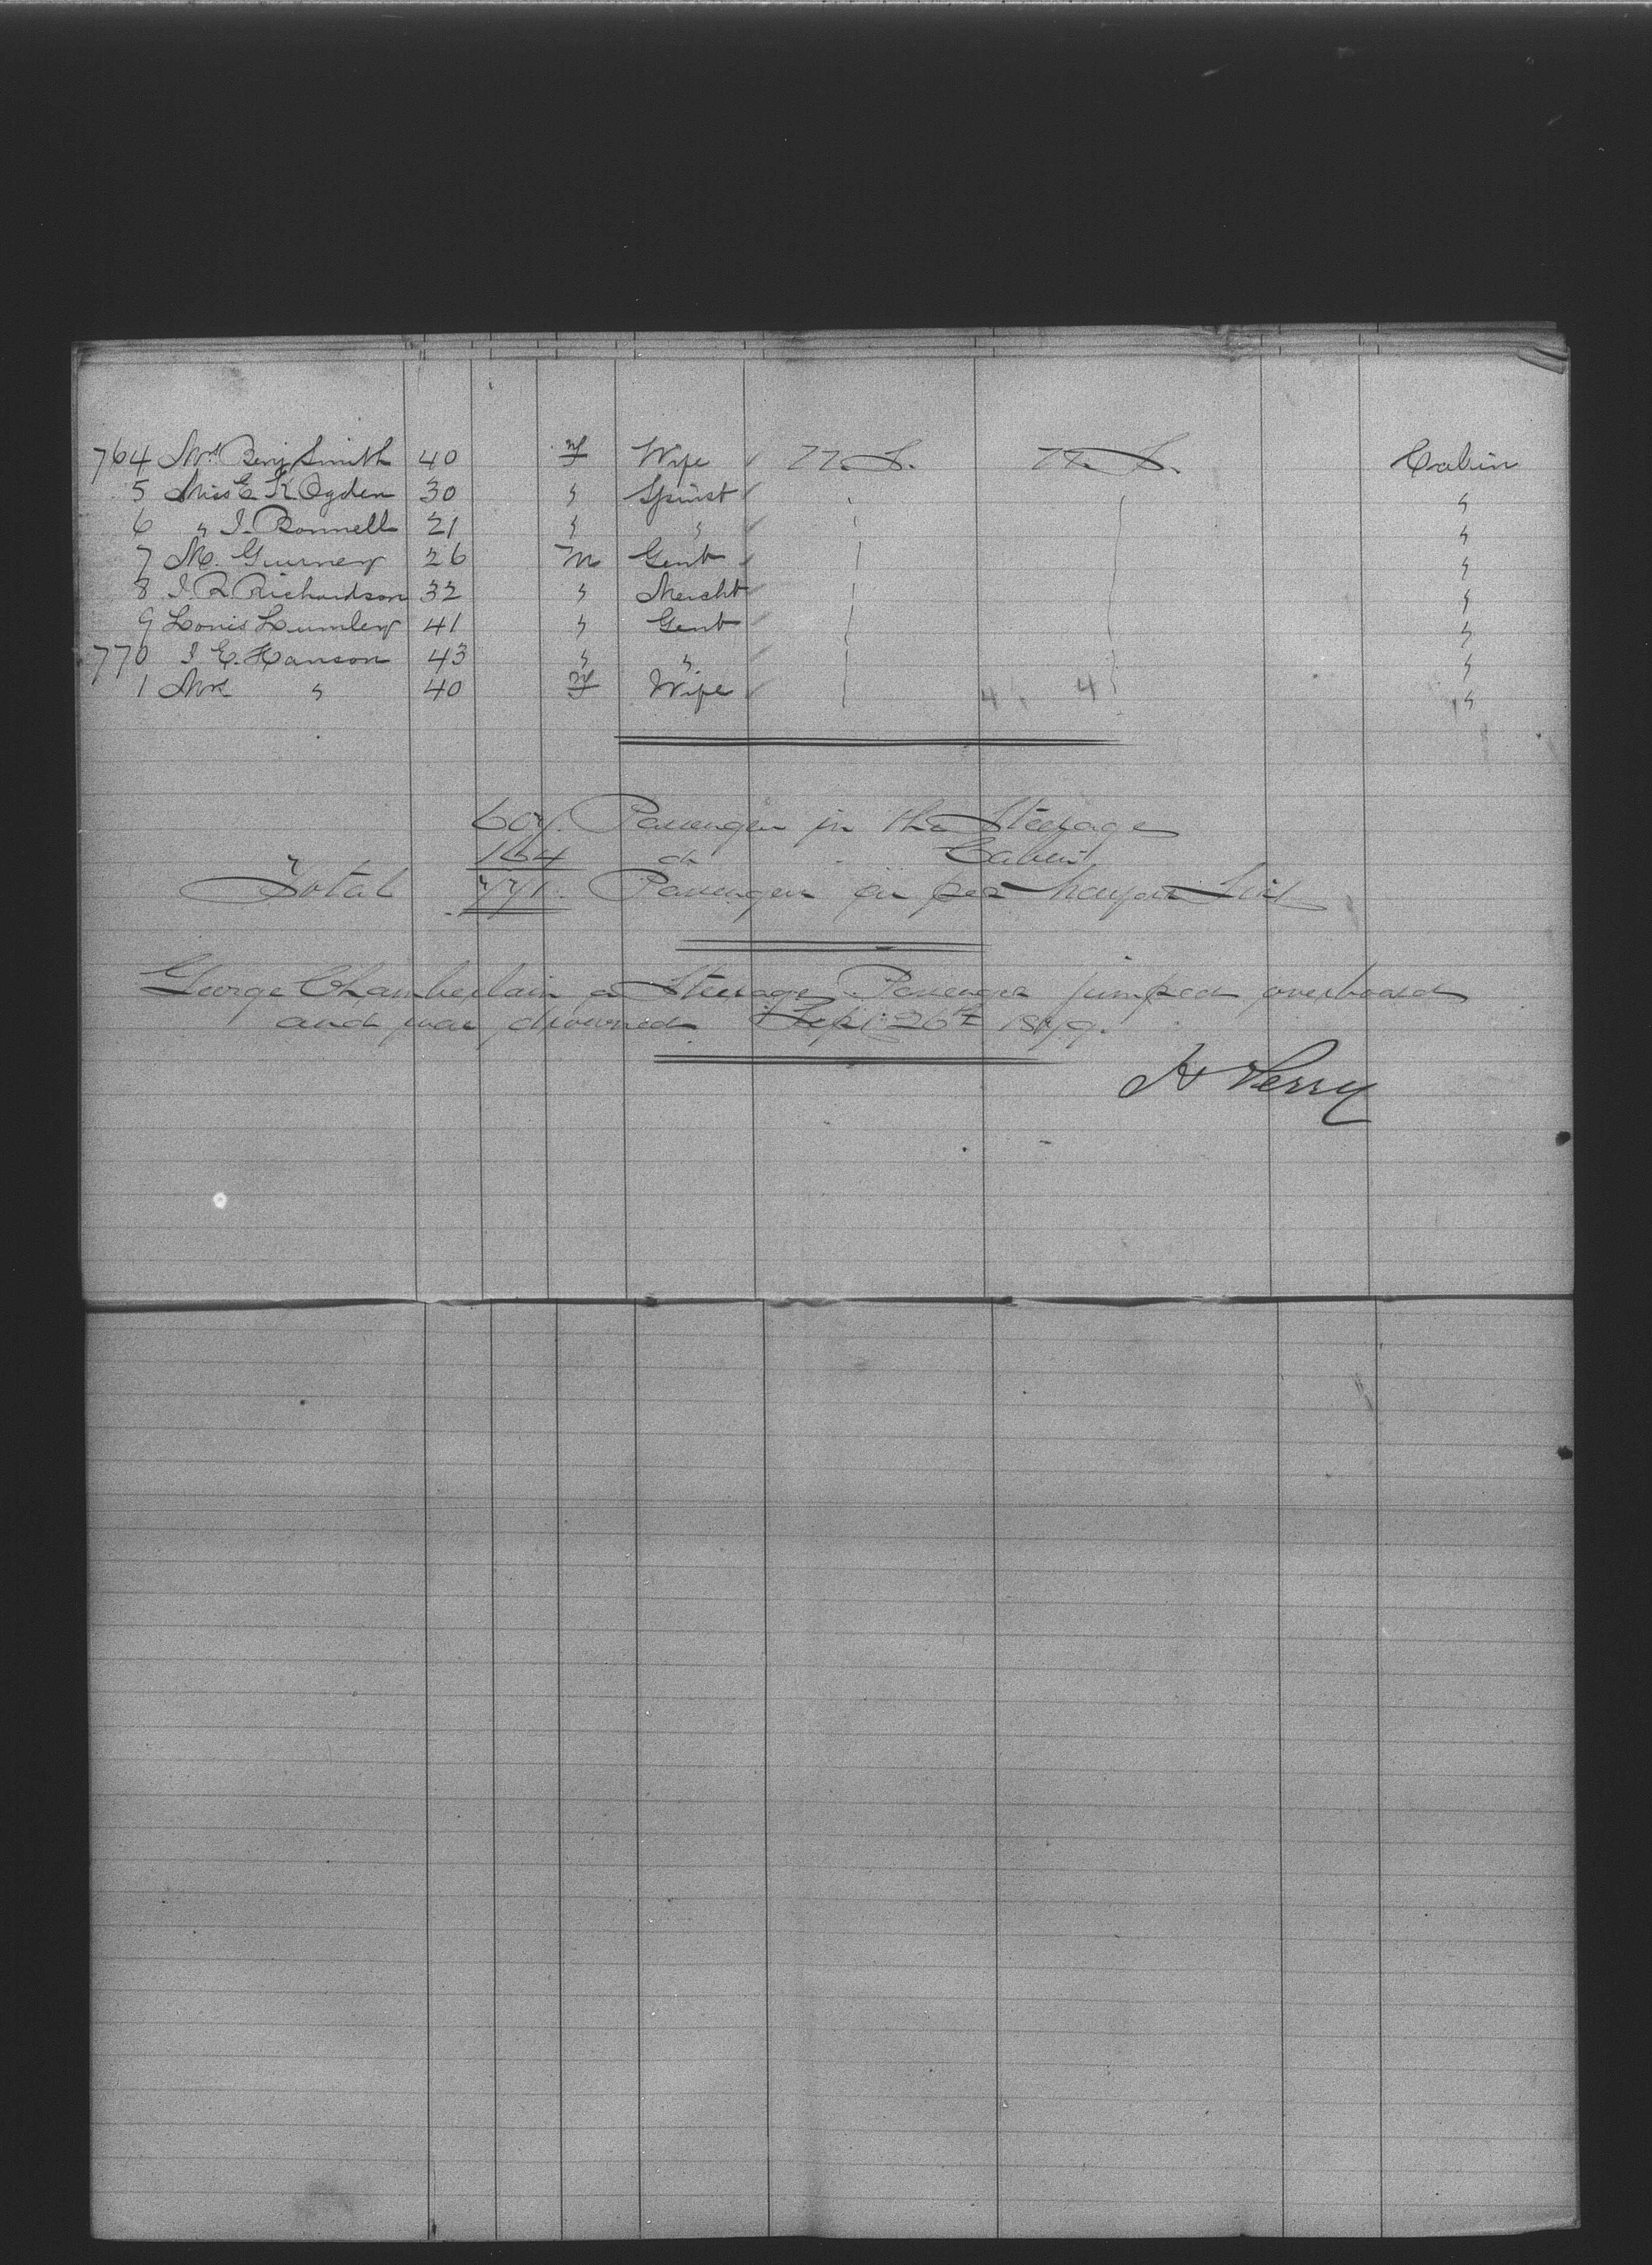 764 Mrs Benj Smith 40 F Wife / U. S. U. S. Cabin
5 Miss E K Ogden 30 " Spinst / "
6 " I. Bonnell 21 " " / "
7 M. Gurney 26 M Gent / "
8 I R Richardson 32 " Mercht / "
9 Louis Lumley 41 " Gent / "
770 I E. Hanson 43 " " "
1 Mrs " 40 F Wife / 4 4 "
607. Passenger in the Steerage
164 do Cabin
Total 771. Passengers as per List
George Chamberlain a Steerage Passenger jumped overboard
and was drowned Sept 26th 1879.
H Perry